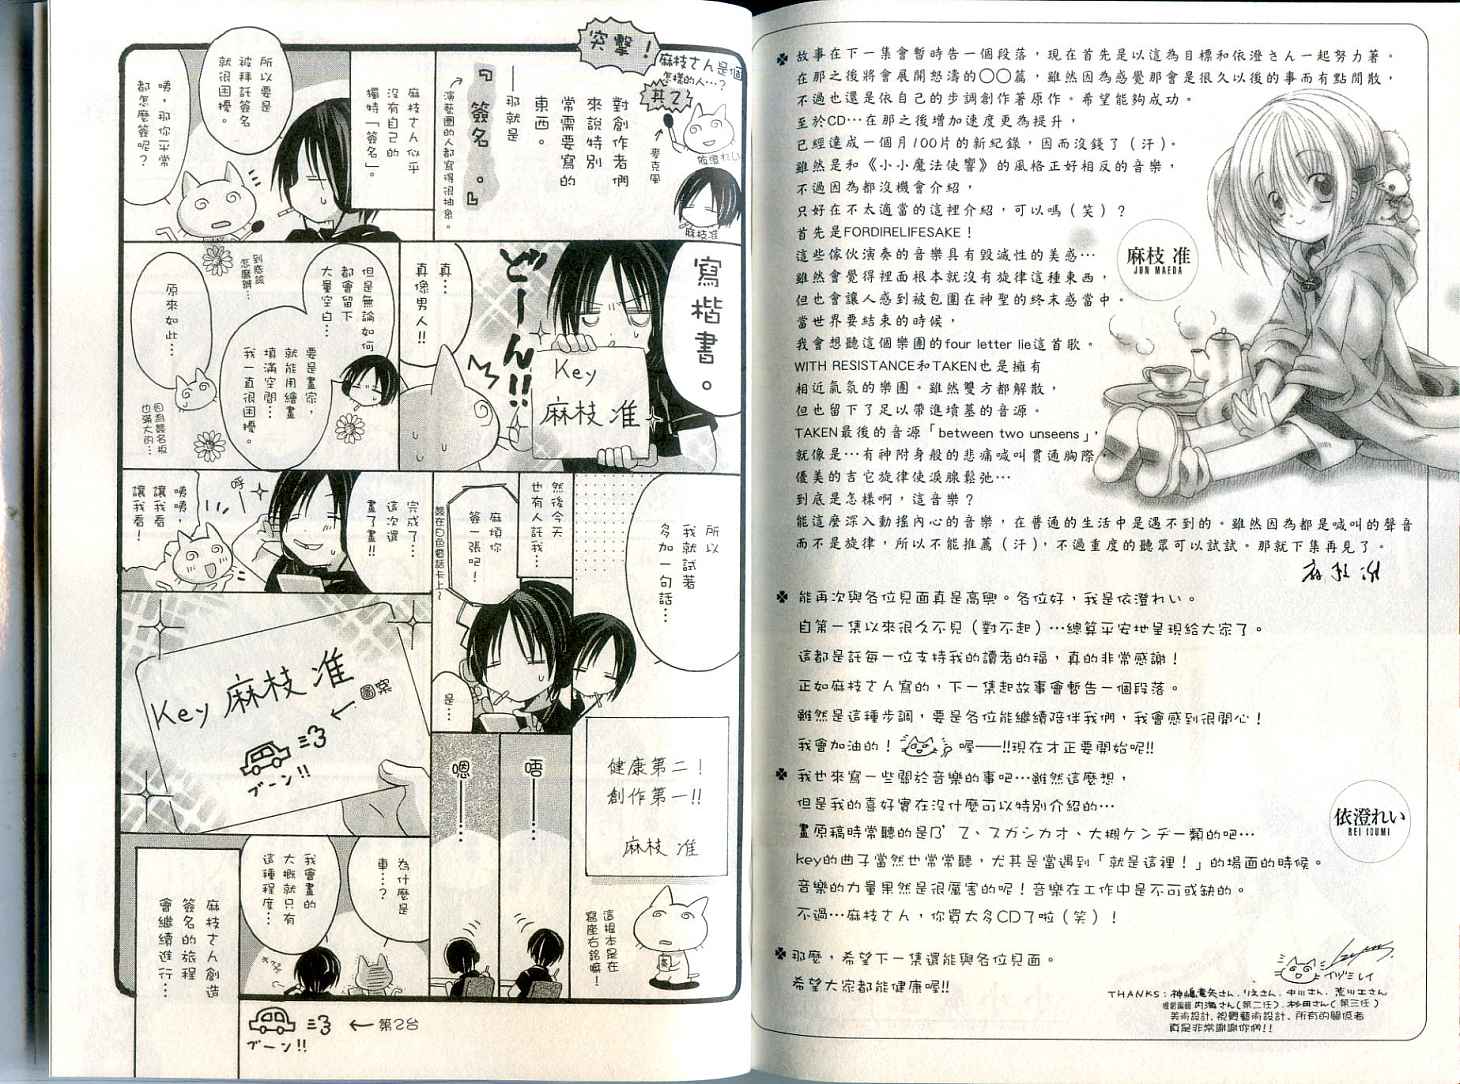 突擊！
麻枝さん是個
怎樣的人…？
其2
麥克風
依澄れい
麻枝准
對創作者們
來說特別
常需要寫的
東西。
──那就是
『簽名。』
演藝圈的人都寫得很抽象。
麻枝さん似乎
沒有自己的
獨特「簽名」。
所以要是
被拜託簽名
就很困擾。
咦，那你平常
都怎麼簽呢？
寫楷書。
Key
麻枝 准
どーん!!
真…
真像男人!!
但是無論如何
都會留下
大量空白…
要是畫家，
就能用繪畫
填滿空間…
我一直很困擾。
到底該
怎麼辦…
原來如此…
因為簽名板
也滿大的…
所以
我就試著
多加一句話…
然後今天
也有人託我…
麻煩你
簽一張吧！
簽在白色電話卡上～
是…
健康第二！
創作第一!!
麻枝 准
唔………
嗯………
這根本是在
寫座右銘嘛！
完成了…
這次還
畫了畫!!
呼～
咦咦，
讓我看！
讓我看！
Key 麻枝 准
圖案
ブーン!!
為什麼是
車…？
我會畫的
大概就只有
這種程度…
麻枝さん創造
簽名的旅程
會繼續進行…
ブーン!!
←第2台
故事在下一集會暫時告一個段落，現在首先是以這為目標和依澄さん一起努力著。
在那之後將會展開怒濤的○○篇，雖然因為感覺那會是很久以後的事而有點閒散，
不過也還是依自己的步調創作著原作。希望能夠成功。
至於CD…在那之後增加速度更為提升，
已經達成一個月100片的新紀錄，因而沒錢了（汗）。
雖然是和《小小魔法使響》的風格正好相反的音樂，
不過因為都沒機會介紹，
只好在不太適當的這裡介紹，可以嗎（笑）？
首先是FORDIRELIFESAKE！
這些傢伙演奏的音樂具有毀滅性的美感…
雖然會覺得裡面根本就沒有旋律這種東西，
但也會讓人感到被包圍在神聖的終末感當中。
當世界要結束的時候，
我會想聽這個樂團的four letter lie這首歌。
WITH RESISTANCE和TAKEN也是擁有
相近氣氛的樂團。雖然雙方都解散，
但也留下了足以帶進墳墓的音源。
TAKEN最後的音源「between two unseens」，
就像是…有神附身般的悲痛喊叫貫通胸際，
優美的吉它旋律使淚腺鬆弛…
到底是怎樣啊，這音樂？
能這麼深入動搖內心的音樂，在普通的生活中是遇不到的。雖然因為都是喊叫的聲音
而不是旋律，所以不能推薦（汗），不過重度的聽眾可以試試。那就下集再見了。
麻枝 准
麻枝 准
JUN MAEDA
能再次與各位見面真是高興。各位好，我是依澄れい。
自第一集以來很久不見（對不起）…總算平安地呈現給大家了。
這都是託每一位支持我的讀者的福，真的非常感謝！
正如麻枝さん寫的，下一集起故事會暫告一個段落。
雖然是這種步調，要是各位能繼續陪伴我們，我會感到很開心！
我會加油的！喔──!!現在才正要開始呢!!
我也來寫一些關於音樂的事吧…雖然這麼想，
但是我的喜好實在沒什麼可以特別介紹的…
畫原稿時常聽的是B'Z、スガシカオ、大槻ケンヂ一類的吧…
key的曲子當然也常常聽，尤其是當遇到「就是這裡！」的場面的時候。
音樂的力量果然是很厲害的呢！音樂在工作中是不可或缺的。
不過…麻枝さん，你買太多CD了啦（笑）！
依澄れい
REI IZUMI
那麼，希望下一集還能與各位見面。
希望大家都能健康喔!!
イヅミレイ
THANKS：神嶋竜矢さん、りえさん、中川さん、荒川工さん
內海さん（第二任）、杉田さん（第三任）
美術設計、視覺藝術設計、所有的關係者
真是非常謝謝你們!!